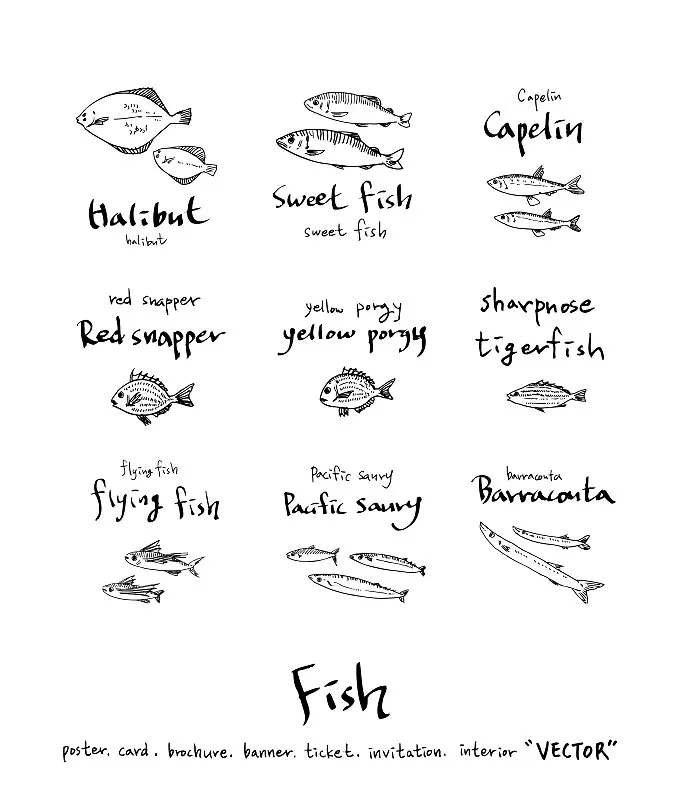 Halibut
halibut
Sweet fish
sweet fish
Capelin
Capelin
red snapper
Red snapper
yellow porgy
yellow porgy
sharpnose
tigerfish
flying fish
flying fish
Pacific saury
Pacific saury
barraconta
Barraconta
Fish
poster. card. brochure. banner. ticket. invitation. interior "VECTOR"